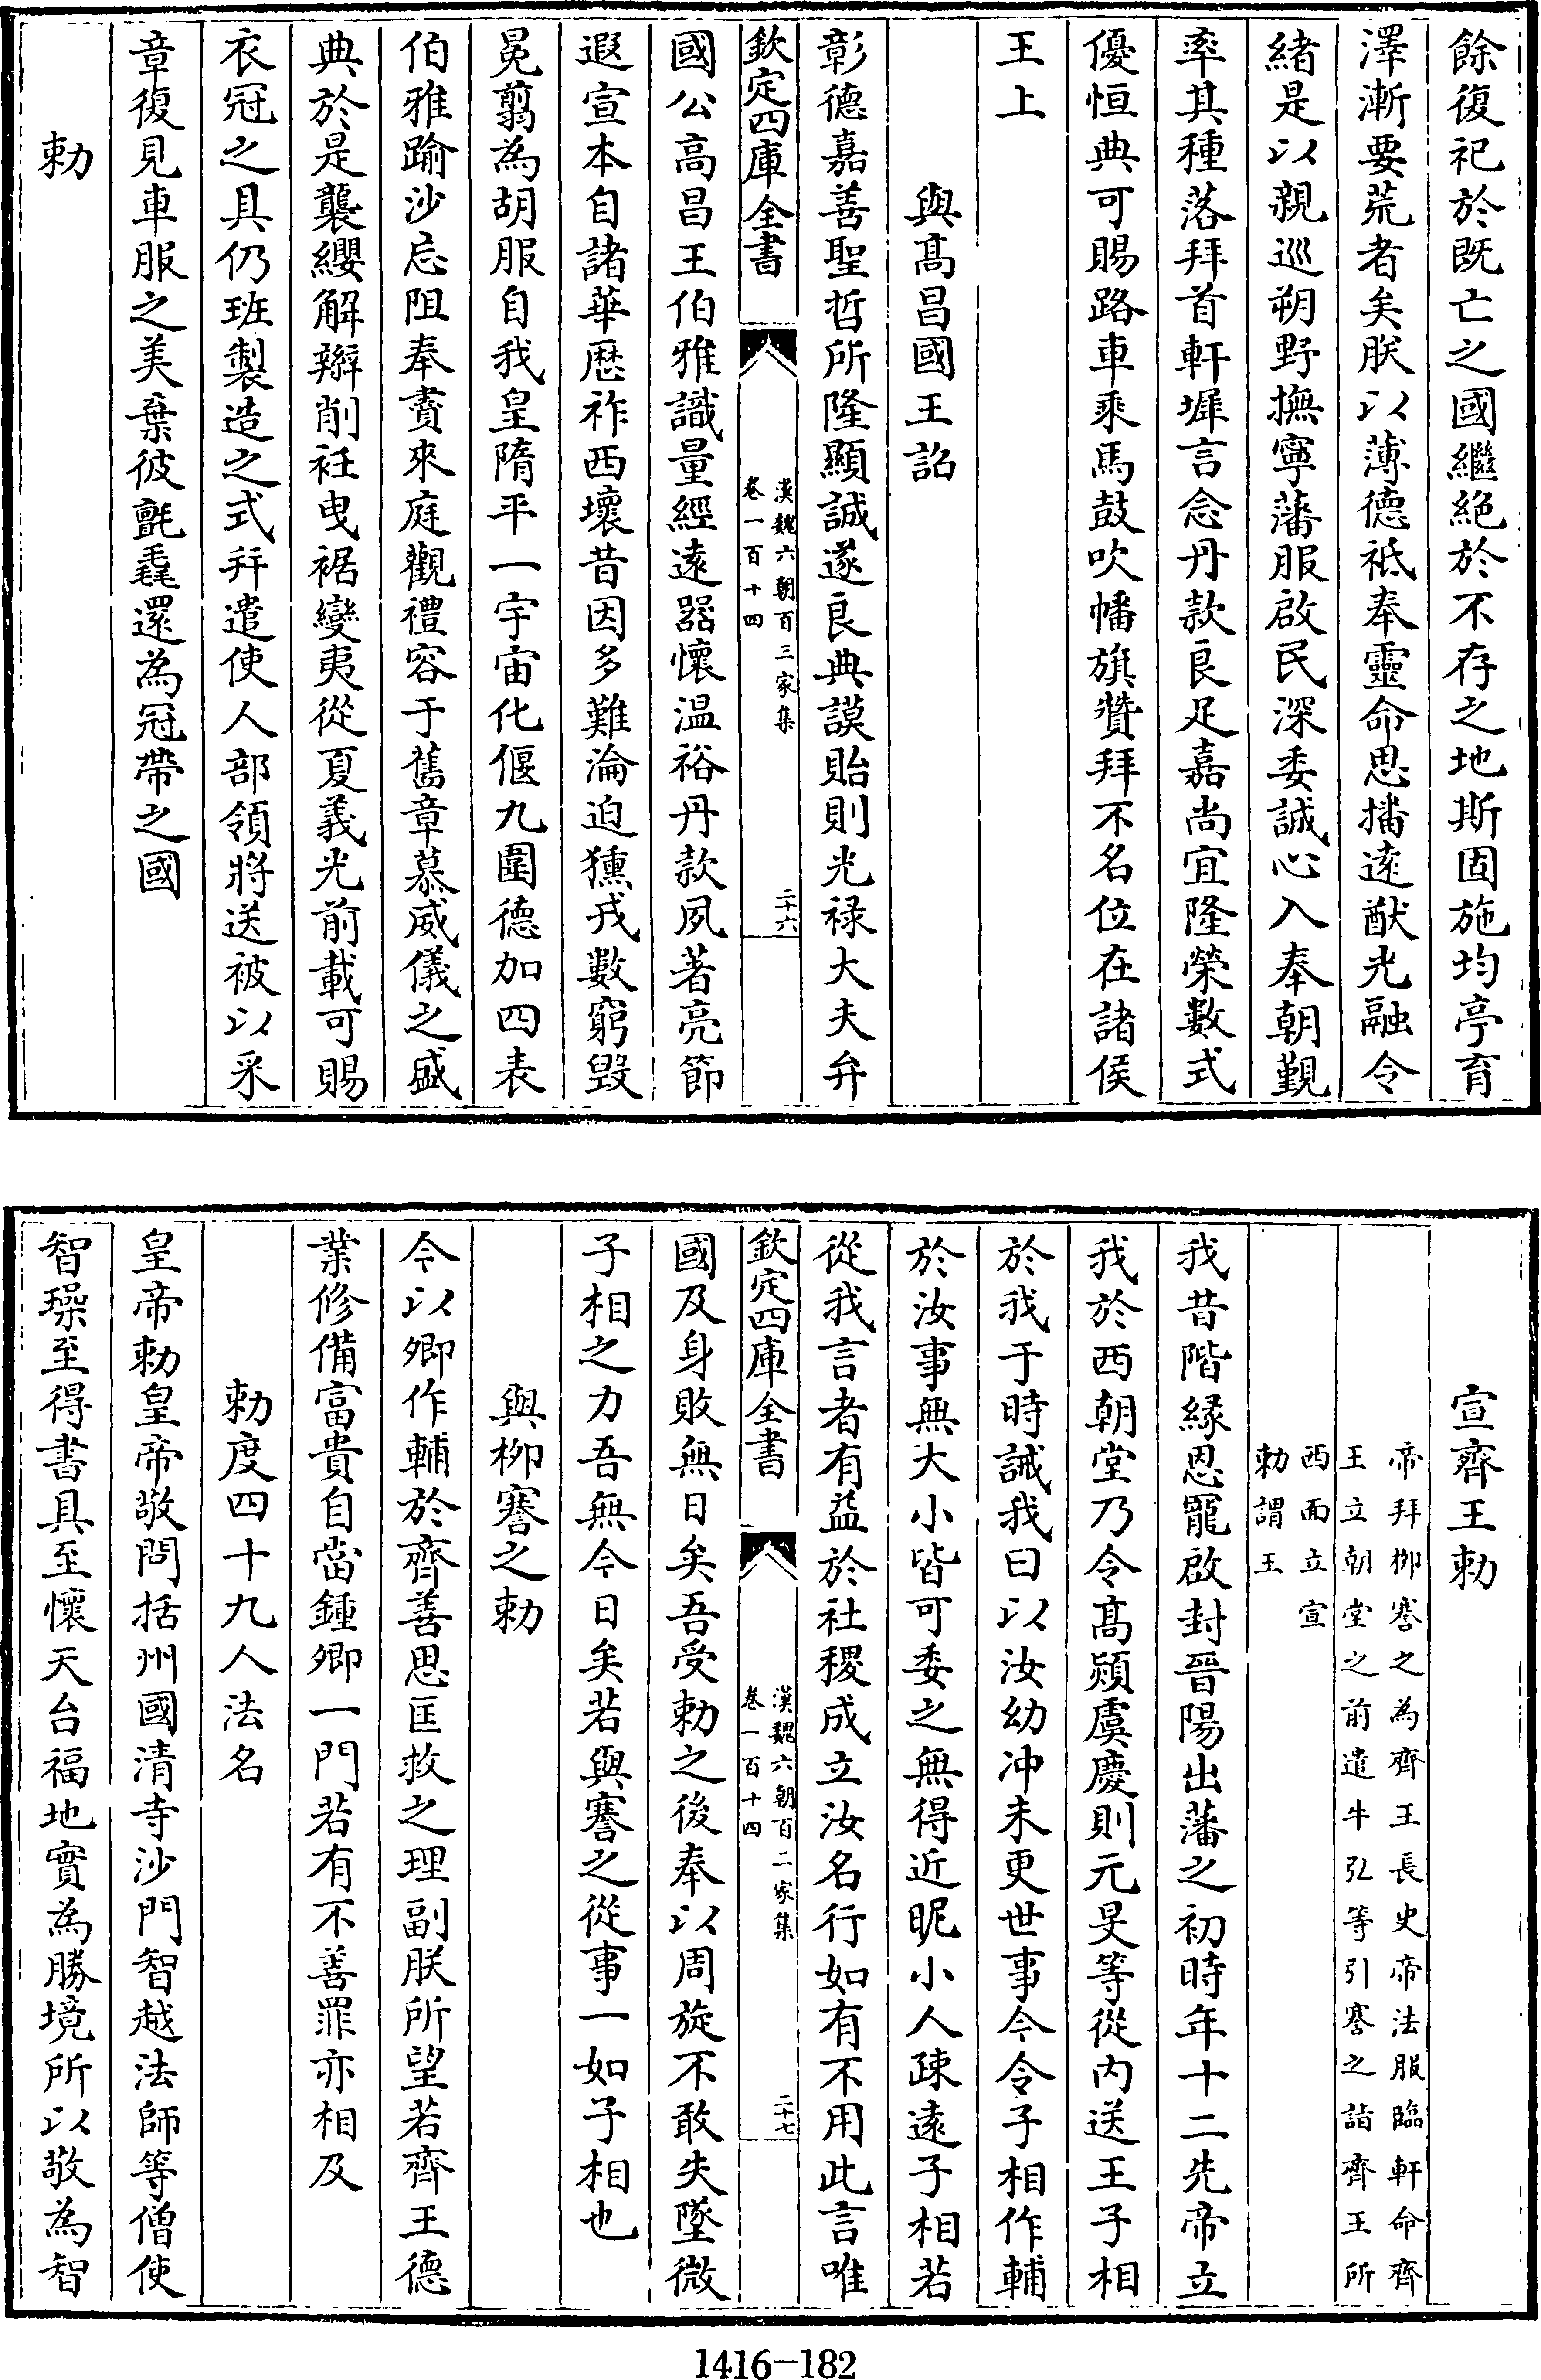 餘復祀於既亡之國繼絕於不存之地斯固施均亭育
澤漸要荒者矣朕以薄德祗奉靈命思播遠猷光融令
緒是以親巡朔野撫寧藩服啟民深委誠心入奉朝覲
率其種落拜首軒墀言念丹款良足嘉尚宜隆榮數式
優恒典可賜路車乘馬鼓吹幡旗贊拜不名位在諸侯
王上
與髙昌國王詔
彰德嘉善聖哲所隆顯誠遂良典謨貽則光禄大夫弁
欽定四庫全書
漢魏六朝百三家集
卷一百十四
二十六
國公高昌王伯雅識量經逺器懷温裕丹款夙著亮節
遐宣本自諸華歴祚西壤昔因多難淪迫獯戎數窮毁
冕翦為胡服自我皇隋平一宇宙化偃九圍德加四表
伯雅踰沙忘阻奉賮來庭觀禮容于舊章慕威儀之盛
典於是襲纓解辮削衽曳裾變夷從夏義光前載可賜
衣冠之具仍班製造之式幷遣使人部領將送被以采
章復見車服之美棄彼氈毳還為冠帶之國
勅
宣齊王勅
帝拜栁謇之為齊王長史帝法服臨軒命齊
王立朝堂之前遣牛弘等引謇之詣齊王所
西面立宣
勅謂王
我昔階緣恩寵啟封晉陽出藩之初時年十二先帝立
我於西朝堂乃令髙熲虞慶則元旻等從内送王子相
於我于時誡我曰以汝幼冲未更世事今令子相作輔
於汝事無大小皆可委之無得近昵小人疎遠子相若
從我言者有益於社稷成立汝名行如有不用此言唯
欽定四庫全書
漢魏六朝百二家集
卷一百十四
二十七
國及身敗無日矣吾受勅之後奉以周旋不敢失墜微
子相之力吾無今日矣若與謇之從事一如子相也
與栁謇之勅
今以卿作輔於齊善思匡救之理副朕所望若齊王德
業修備富貴自當鍾卿一門若有不善罪亦相及
勅度四十九人法名
皇帝勅皇帝敬問括州國清寺沙門智越法師等僧使
智璪至得書具至懷天台福地實為勝境所以敬為智
1416—182